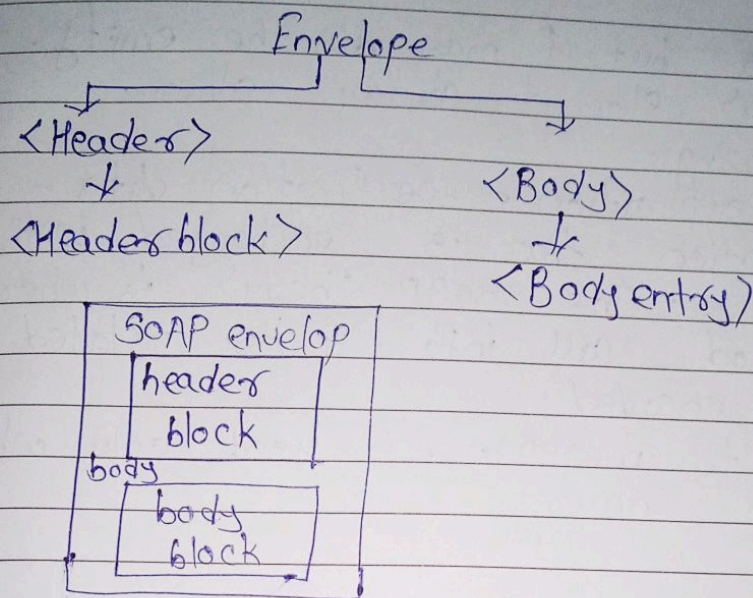 Envelope
<Header>
<Body>
<Header block>
<Body entry>
SOAP envelop
header
block
body
body
block